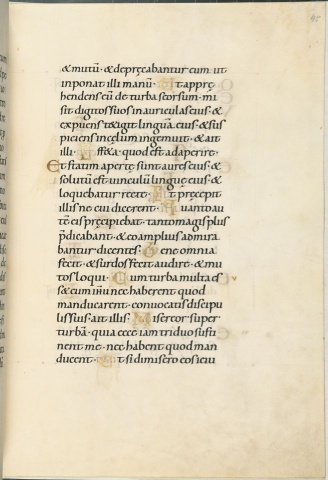 & mutū· & depręcabantur eum ut
inponat illi manū· Et appre
hendens eū de turba seorsum· mi
sit digitos suos in auriculas eius· &
expuens tetigit linguā eius· & sus
piciens in cęlum ingemuit· & ait
illi· Effeta· quod est adaperire·
Et statim apertę sunt aures eius· &
solutū est vinculū linguę eius· &
loquebatur recte· Et pręcepit
illis ne cui dicerent· Quanto au
tē eis pręcipiebat· tanto magis plus
prędicabant· & eo amplius admira
bantur dicentes· Bene omnia
fecit· & surdos fecit audire· & mu
tos loqui· Cum turba multa es
s& cum ihu nec haberent quod
manducarent· convocatis discipu
lis suis· ait illis· Misereor super
turbā· quia ecce iam triduo susti
nent me· nec habent quod man
ducent· Et si dimisero eos ieiu